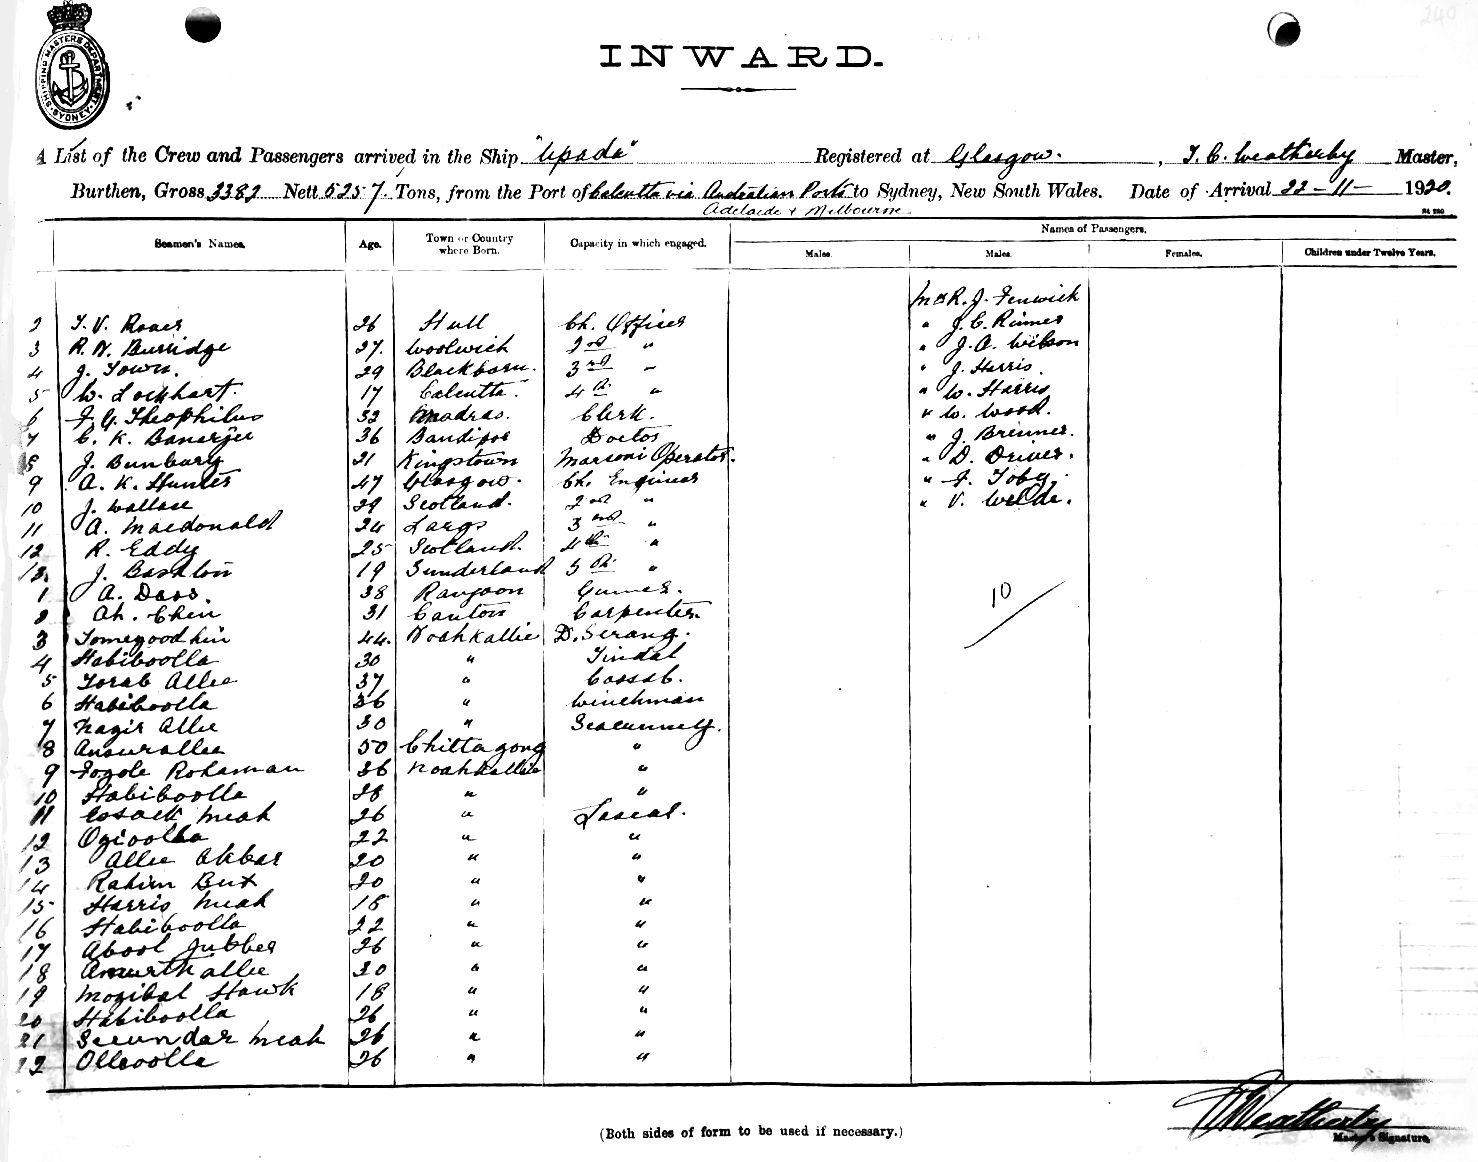 240
SHIPPING MASTERS DEPARTMENT
SYDNEY
INWARD.
A List of the Crew and Passengers arrived in the Ship "Upada" Registered at Glasgow. , T. C. Weatherby Master,
Burthen, Gross 5257 Tons, from the Port of Calcutta via Australian Ports to Sydney, New South Wales. Date of Arrival 22-11-1920.
Adelaide & Melbourne
Seamen's Names. Age. Town or Country where Born. Capacity in which engaged. Names of Passengers.
Males. Males. Females. Children under Twelve Years.
Mr R. J. Fenwick
2 T. V. 26 Hull Ch. Officer " J. C. Rimmer
3 R. N. Burridge 27. Woolwich 2nd " " J. A. Wilson
4 J. Town. 29 Blackburn. 3rd " J. Harris.
5 W. Lockhart. 17 Calcutta. 4th " " W. Harris
6 F. G. Theophilus 32 Madras. Clerk. " W. Wood.
7 C. K. Banerjee 36 Doctor " J. Brenner.
8 J. Bunbury 21 Kingstown Marconi Operator. " D. Driver.
9 A. K. Hunter 47 Glasgow. Ch. Engineer " F. Toby.
10 J. Wallace 29 Scotland. 2nd " " V. Welde.
11 A. Macdonald 24 Largs 3rd "
12 R. Eddy 25 Scotland. 4th "
13. J. 19 Sunderland 5th "
1 A. Dass. 38 Rangoon Gunner. 10
2 Ah. Chin 31 Canton Carpenter.
3 44. Noahkallie D. Serang.
4 Habiboolla 30 " Tindal
5 Torab Allie 37 " Cassab.
6 Habiboolla 36 " Winchman
7 Nazir Allie 30 " Seacunney.
8 Ansurallee 50 Chittagong "
9 Fozole Rohaman 36 Noahkallie "
10 Habiboolla 28 " "
11 Meah 26 " Lascar.
12 22 " "
13 Allie Akbar 20 " "
14 Rahim Bux 20 " "
15 Harris Meah 18 " "
16 Habiboolla 22 " "
17 Abool Jubber 26 " "
18 Allie 20 " "
19 Mozibal Hawk 18 " "
20 Habiboolla 26 " "
21 Secundar Meah 26 " "
22 Olleoolla 26 " "
T C Weatherby
Master's Signature.
(Both sides of form to be used if necessary.)